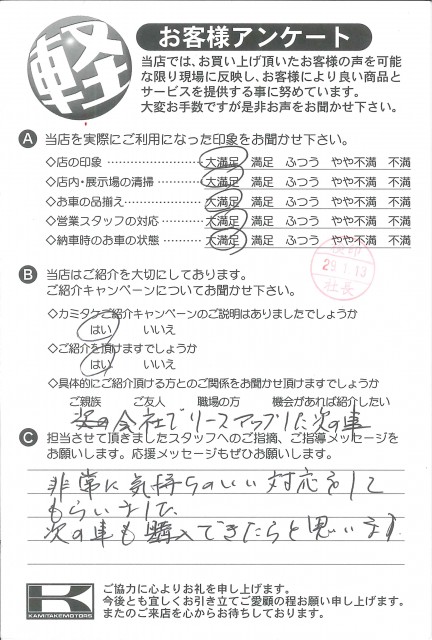 軽
お客様アンケート
当店では、お買い上げ頂いたお客様の声を可能
な限り現場に反映し、お客様により良い商品と
サービスを提供する事に努めています。
大変お手数ですが是非お声をお聞かせ下さい。
A 当店を実際にご利用になった印象をお聞かせ下さい。
◇店の印象 ………………… 大満足 満足 ふつう やや不満 不満
◇店内・展示場の清掃………… 大満足 満足 ふつう やや不満 不満
◇お車の品揃え……………… 大満足 満足 ふつう やや不満 不満
◇営業スタッフの対応………… 大満足 満足 ふつう やや不満 不満
◇納車時のお車の状態 ……… 大満足 満足 ふつう やや不満 不満
29.1.13
社長
B 当店はご紹介を大切にしております。
ご紹介キャンペーンについてお聞かせ下さい。
◇カミタケご紹介キャンペーンのご説明はありましたでしょうか
はい いいえ
◇ご紹介を頂けますでしょうか
はい いいえ
◇具体的にご紹介頂ける方とのご関係をお聞かせ頂けますでしょうか
ご親族 ご友人 職場の方 機会があれば紹介したい
次の会社でリースアップした次の車
C 担当させて頂きましたスタッフへのご指摘、ご指導メッセージを
お願いします。応援メッセージもぜひお願いします。
非常に気持ちのいい対応をして
もらいました
次の車も購入できたらと思います
K
KAMITAKEMOTORS
ご協力に心よりお礼を申し上げます。
今後とも宜しくお引き立てご愛顧の程お願い申し上げます。
またのご来店を心からお待ちしております。